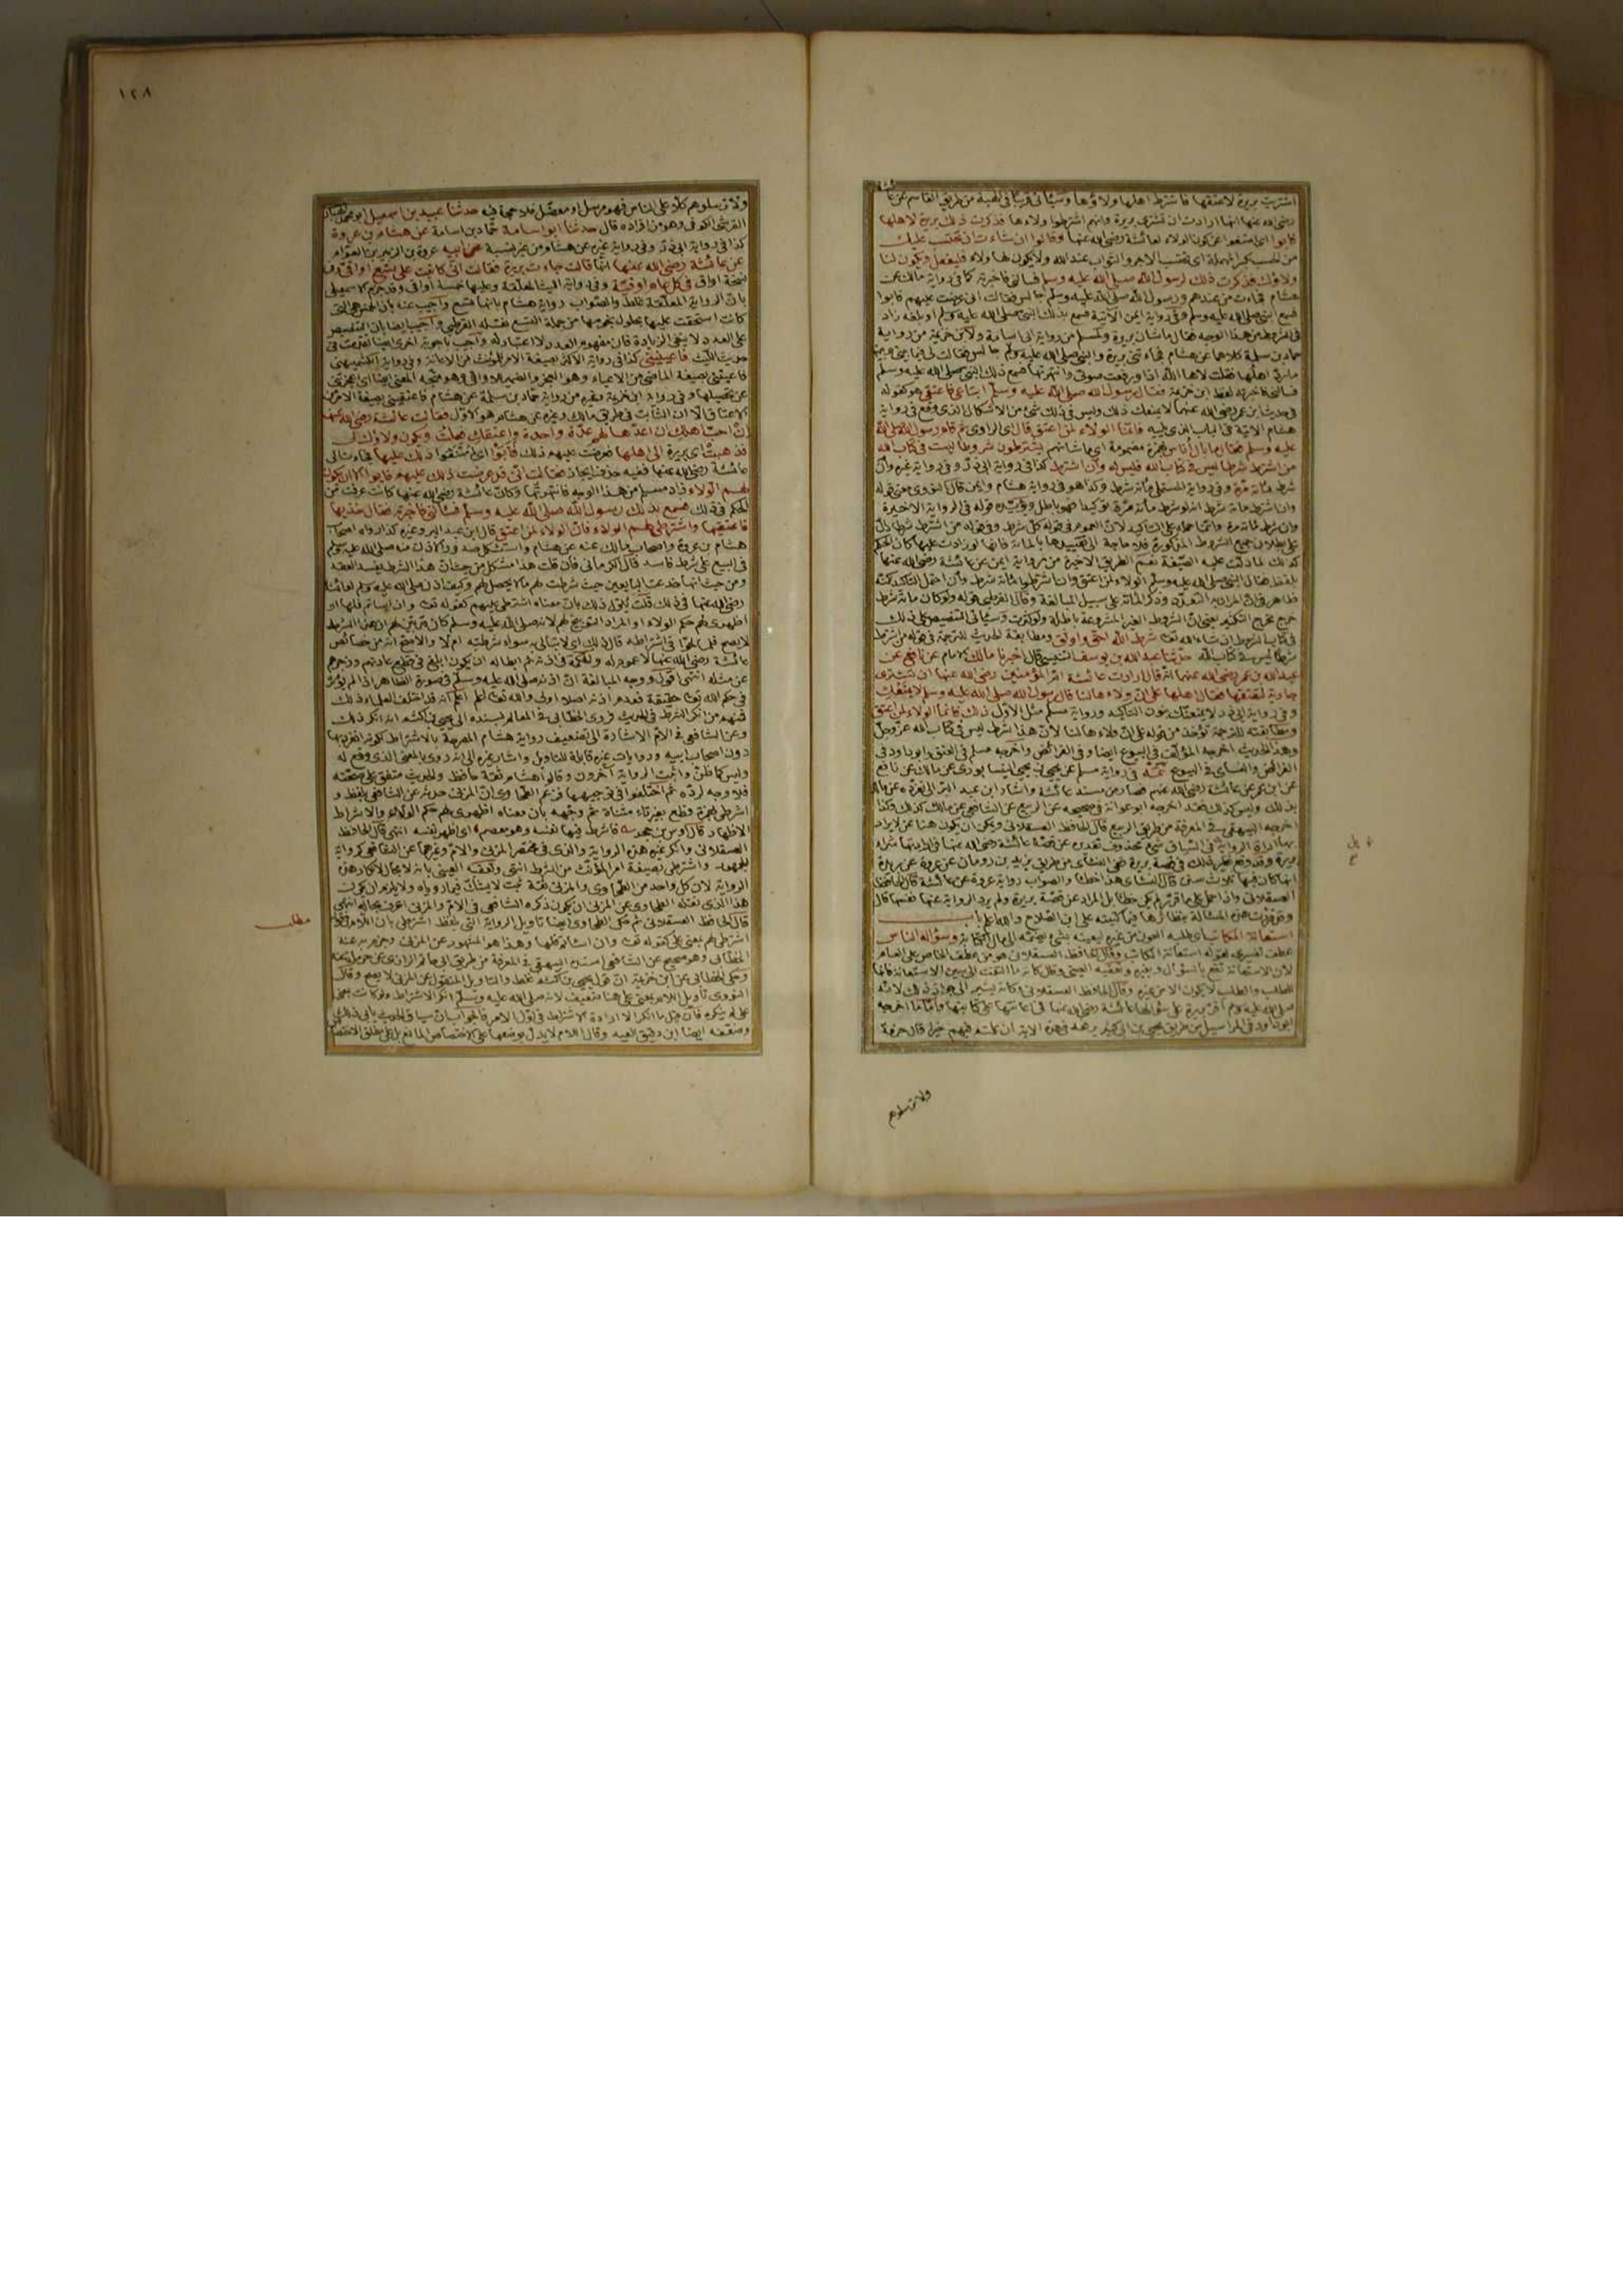 اشترت بريرة لاعتقها فاشترط اهلها ولاؤها وسيأتى قريبا فى الهبة من طريق القاسم عن عائشة
رضى الله عنها انها ارادت ان تشترى بريرة وانهم اشترطوا ولاءها فذكرت ذلك بريرة لاهلها
فابوا اى امتنعوا عن كون الولاء لعائشة رضى الله عنها وقالوا ان شاءت ان تحتسب عليك
الاجر والثواب عند الله ولا يكون لها ولاء فلتفعل ويكون لنا
ولاؤك فذكرت ذلك لرسول الله صلى الله عليه وسلم فسالنى فاخبرته كما فى رواية مالك عن
هشام فجاءت من عندهم ورسول الله صلى الله عليه وسلم جالس فقالت انى عرضت عليهم فابوا
فسمع النبى صلى الله عليه وسلم وفى رواية ايمن الآتية فسمع بذلك النبى صلى الله عليه وسلم او بلغه زاد
فى الشروط من هذا الوجه فقال ما شان بريرة ولمسلم من رواية ابى اسامة ولابن خزيمة من رواية
حماد بن سلمة كلاهما عن هشام فجاءتنى بريرة والنبى صلى الله عليه وسلم جالس فقالت لى فيما بينى وبينها
ما رد اهلها فقلت لاها الله اذا ورفعت صوتى وانتهرتها فسمع ذلك النبى صلى الله عليه وسلم
فسالنى فاخبرته لفظ ابن خزيمة فقال رسول الله صلى الله عليه وسلم ابتاعى فاعتقى هو كقوله
فى حديث ابن عمر رضى الله عنهما لا يمنعك ذلك وليس فى ذلك شئ من الاشكال الذى وقع فى رواية
هشام الآتية فى الباب الذى يليه فانما الولاء لمن اعتق قال اى الراوى ثم قام رسول الله صلى الله
عليه وسلم فقال ما بال اناس بهمزة مضمومة اى ما شانهم يشترطون شروطا ليست فى كتاب الله
من اشترط شرطا ليس فى كتاب الله فليس له وان اشترط كذا فى رواية ابى ذر وفى رواية غيره وان
شرط مائة مرة وفى رواية المستملى مائة شرط وكذا هو فى رواية هشام وايمن قال النووى معنى قوله
وان شرط مائة شرط انه لو شرط مائة مرة توكيدا فهو باطل ويؤيده قوله فى الرواية الاخيرة
وان شرط مائة مرة وانما حمله على التاكيد لان العموم فى قوله كل شرط وفى قوله من اشترط شرطا دال
على بطلان جميع الشروط المذكورة فلا حاجة الى تقييدها بالمائة فانها لو زادت عليها كان الحكم
كذلك لما دلت عليه الصيغة نعم الطريق الاخيرة من رواية ايمن عن عائشة رضى الله عنها
بلفظ فقال النبى صلى الله عليه وسلم الولاء لمن اعتق وان اشترطوا مائة شرط وان احتمل التاكيد لكنه
ظاهر فى ان المراد به التعدد وذكر المائة على سبيل المبالغة وقال القرطبى قوله ولو كان مائة شرط
خرج مخرج التكثير يعنى ان الشروط الغير المشروعة باطلة ولو كثرت وسيأتى التنصيص على ذلك
فى كتاب الشروط ان شاء الله تعالى شرط الله احق واوثق ومطابقة الحديث للترجمة فى قوله من اشترط
شرطا ليس فى كتاب الله حدثنا عبد الله بن يوسف التنيسى قال اخبرنا مالك الامام عن نافع عن
عبد الله بن عمر رضى الله عنهما انه قال ارادت عائشة ام المؤمنين رضى الله عنها ان تشترى
جارية لتعتقها فقال اهلها على ان ولاءها لنا قال رسول الله صلى الله عليه وسلم لا يمنعك
وفى رواية ابى ذر لا يمنعنك بنون التاكيد ورواية مسلم مثل الاول ذلك فانما الولاء لمن اعتق
ومطابقته للترجمة تؤخذ من قوله على ان ولاءها لنا لان هذا الشرط ليس فى كتاب الله عز وجل
وهذا الحديث اخرجه المؤلف فى البيوع ايضا وفى الفرائض واخرجه مسلم فى العتق وابو داود فى
الفرائض والنسائى فى البيوع تتمة فى رواية مسلم عن يحيى بن يحيى النيسابورى عن مالك عن نافع
عن ابن عمر عن عائشة رضى الله عنهم فصار من مسند عائشة واشار ابن عبد البر الى تفرده عن مالك
بذلك وليس كذلك فقد اخرجه ابو عوانة فى صحيحه عن الربيع عن الشافعى عن مالك كذلك وكذا
اخرجه البيهقى فى المعرفة من طريق الربيع قال الحافظ العسقلانى ويمكن ان يكون هنا عن لا يراد
بها اداة الرواية بل فى السياق شئ محذوف تقديره عن قصة عائشة رضى الله عنها فى ارادتها شراء
بريرة وقد وقع نظير ذلك فى قصة بريرة ففى النسائى من طريق يزيد بن رومان عن عروة عن بريرة
انها كان فيها ثلاث سنن قال النسائى هذا خطا والصواب رواية عروة عن عائشة قال الحافظ
العسقلانى واذا حمل على ما قررته لم يكن خطا بل المراد عن قصة بريرة ولم يرد الرواية عنها نفسها قال
وقد قررت هذه المسألة بنظائرها فيما كتبته على ابن الصلاح والله اعلم باب
استعانة المكاتب اى طلبه العون من غيره ليعينه بشئ يضمه الى مال الكتابة وسؤاله الناس
عطف تفسيرى لقوله استعانة المكاتب وقال الحافظ العسقلانى هو من عطف الخاص على العام
لان الاستعانة تقع بالسؤال وبغيره وتعقبه العينى
للطلب والطلب لا يكون الا من غيره وقال الحافظ العسقلانى وكانه يشير الى جواز ذلك لانه
صلى الله عليه وسلم اقر بريرة على سؤالها عائشة رضى الله عنها فى اعانتها على كتابتها واما ما اخرجه
ابو داود فى المراسيل من طريق يحيى بن ابى كثير يرفعه فى هذه الآية ان علمتم فيهم خيرا قال حرفة
ولا ترسلوهم
١٢٨
ولا ترسلوهم كلا على الناس فهو مرسل او معضل فلا حجة فيه حدثنا عبيد بن اسمعيل ابو محمد الهبارى
القرشى الكوفى وهو من افراده قال حدثنا ابو اسامة حماد بن اسامة عن هشام بن عروة
كذا فى رواية ابى ذر وفى رواية غيره عن هشام من غير نسبة عن ابيه عروة بن الزبير بن العوام
عن عائشة رضى الله عنها انها قالت جاءت بريرة فقالت انى كاتبت على تسع اواق وفى
نسخة اواقى فى كل عام اوقية وفى رواية الليث المعلقة وعليها خمسة اواقى وقد جزم الاسمعيلى
بان الرواية المعلقة غلط والصواب رواية هشام بانها تسع واجيب عنه بان الخمس هى التى
كانت استحقت عليها بحلول نجومها من جملة التسع نقله القرطبى واجيب ايضا بان التنصيص
على العدد لا ينفى الزيادة فان مفهوم العدد لا اعتبار له واجيب باجوبة اخرى ايضا تقدمت فى
حديث الليث فاعينينى كذا فى رواية الاكثر بصيغة الامر للمؤنث من الاعانة وفى رواية الكشميهنى
فاعيتنى بصيغة الماضى من الاعياء وهو العجز والضمير للاواقى وهو متجه المعنى ايضا اى اعجزتنى
عن تحصيلها وفى رواية ابن خزيمة وغيره من رواية حماد بن سلمة عن هشام فاعتقينى بصيغة الامر من
الاعتاق الا ان الثابت فى طرق مالك وغيره عن هشام هو الاول فقالت عائشة رضى الله عنها
ان احب اهلك ان اعدها لهم عدة واحدة واعتقك فعلت ويكون ولاؤك لى
فذهبت اى بريرة الى اهلها فعرضت عليهم ذلك فابوا اى امتنعوا ذلك عليها فجاءت الى
عائشة رضى الله عنها ففيه حذف وايجاز فقالت انى قد عرضت ذلك عليهم فابوا الا ان يكون
لهم الولاء زاد مسلم من هذا الوجه فانتهرتها وكان عائشة رضى الله عنها كانت عرفت من
الحكم فى ذلك فسمع بذلك رسول الله صلى الله عليه وسلم فسألنى فاخبرته فقال خذيها
فاعتقيها واشترطى لهم الولاء فان الولاء لمن اعتق قال ابن عبد البر وغيره كذا رواه اصحاب
هشام بن عروة واصحاب مالك عنه عن هشام واستشكل صدور الاذن منه صلى الله عليه وسلم
فى البيع على شرط فاسد قال الكرمانى فان قلت هذا مشكل من حيث ان هذا الشرط يفسد العقد
ومن حيث انها خدعت البايعين حيث شرطت لهم ما لا يحصل لهم وكيف اذن صلى الله عليه وسلم لعائشة
رضى الله عنها فى ذلك قلت يأول ذلك بان معناه اشترطى عليهم كقوله تعالى وان اسأتم فلها او
اظهرى لهم حكم الولاء او المراد التوبيخ لهم لانه صلى الله عليه وسلم كان بين لهم ان هذا الشرط
لا يصح فلما لحوا فى اشتراطه قال ذلك اى لا تبالى به سواء شرطتيه ام لا والاصح انه من خصائص
عائشة رضى الله عنها لا عموم له والحكمة فى اذنه ثم ابطاله ان يكون ابلغ فى قطع عادتهم وزجرهم
عن مثله انتهى اقول ووجه المبالغة ان اذنه صلى الله عليه وسلم فى صورة الظاهر اذا لم يؤثر
فى حكم الله تعالى حقيقة فعدم اذنه اصلا اولى والله تعالى اعلم اعلم انه قد اختلف العلماء فى ذلك
فمنهم من انكر الشرط فى الحديث فروى الخطابى فى المعالم بسنده الى يحيى بن اكثم انه انكر ذلك
وعن الشافعى فى الام الاشارة الى تضعيف رواية هشام المصرحة بالاشتراط لكونه انفرد بها
دون اصحاب ابيه وروايات غيره قابلة للتاويل واشار غيره الى انه روى بالمعنى الذى وقع له
وليس كما ظن واثبت الرواية آخرون وقالوا هشام ثقة حافظ والحديث متفق على صحته
فلا وجه لرده ثم اختلفوا فى توجيهها فزعم الطحاوى ان المزنى حدثه عن الشافعى بلفظ و
اشرطى بهمزة قطع بغير تاء مثناة ثم وجهه بان معناه اظهرى لهم حكم الولاء والاشراط
الاظهار قال اوس بن حجر فاشرط فيها نفسه وهو معصم اى اظهر نفسه انتهى قال الحافظ
العسقلانى وانكر غيره هذه الرواية والذى فى مختصر المزنى والام وغيرهما عن الشافعى كرواية
الجمهور واشترطى بصيغة امر المؤنث من الشرط انتهى وتعقبه العينى بانه لا مجال لانكار هذه
الرواية لان كل واحد من الطحاوى والمزنى ثقة ثبت لا يشك فيما روياه ولا يلزم ان يكون
هذا الذى نقله الطحاوى عن المزنى ان يكون ذكره الشافعى فى الام والمزنى اعرف بحاله انتهى
قال الحافظ العسقلانى ثم حكى الطحاوى ايضا تاويل الرواية التى بلفظ اشترطى بان اللام فى قوله
اشترطى لهم بمعنى على كقوله تعالى وان اسأتم فلها وهذا هو المشهور عن المزنى وجزم به عنه
الخطابى وهو صحيح عن الشافعى اسنده البيهقى فى المعرفة من طريق ابى حاتم الرازى عن حرملة عنه
وحكى الخطابى عن ابن خزيمة ان قول يحيى بن اكثم غلط والتاويل المنقول عن المزنى لا يصح وقال
النووى تاويل اللام بمعنى على هنا ضعيف لانه صلى الله عليه وسلم انكر الاشتراط ولو كانت بمعنى
على لم ينكره فان قيل ما انكر الا ارادة الاشتراط فى اول الامر فالجواب ان سياق الحديث يابى ذلك
وضعفه ايضا ابن دقيق العيد وقال اللام لا يدل بوضعها على الاختصاص النافع بل على مطلق الاختصاص
مطلب